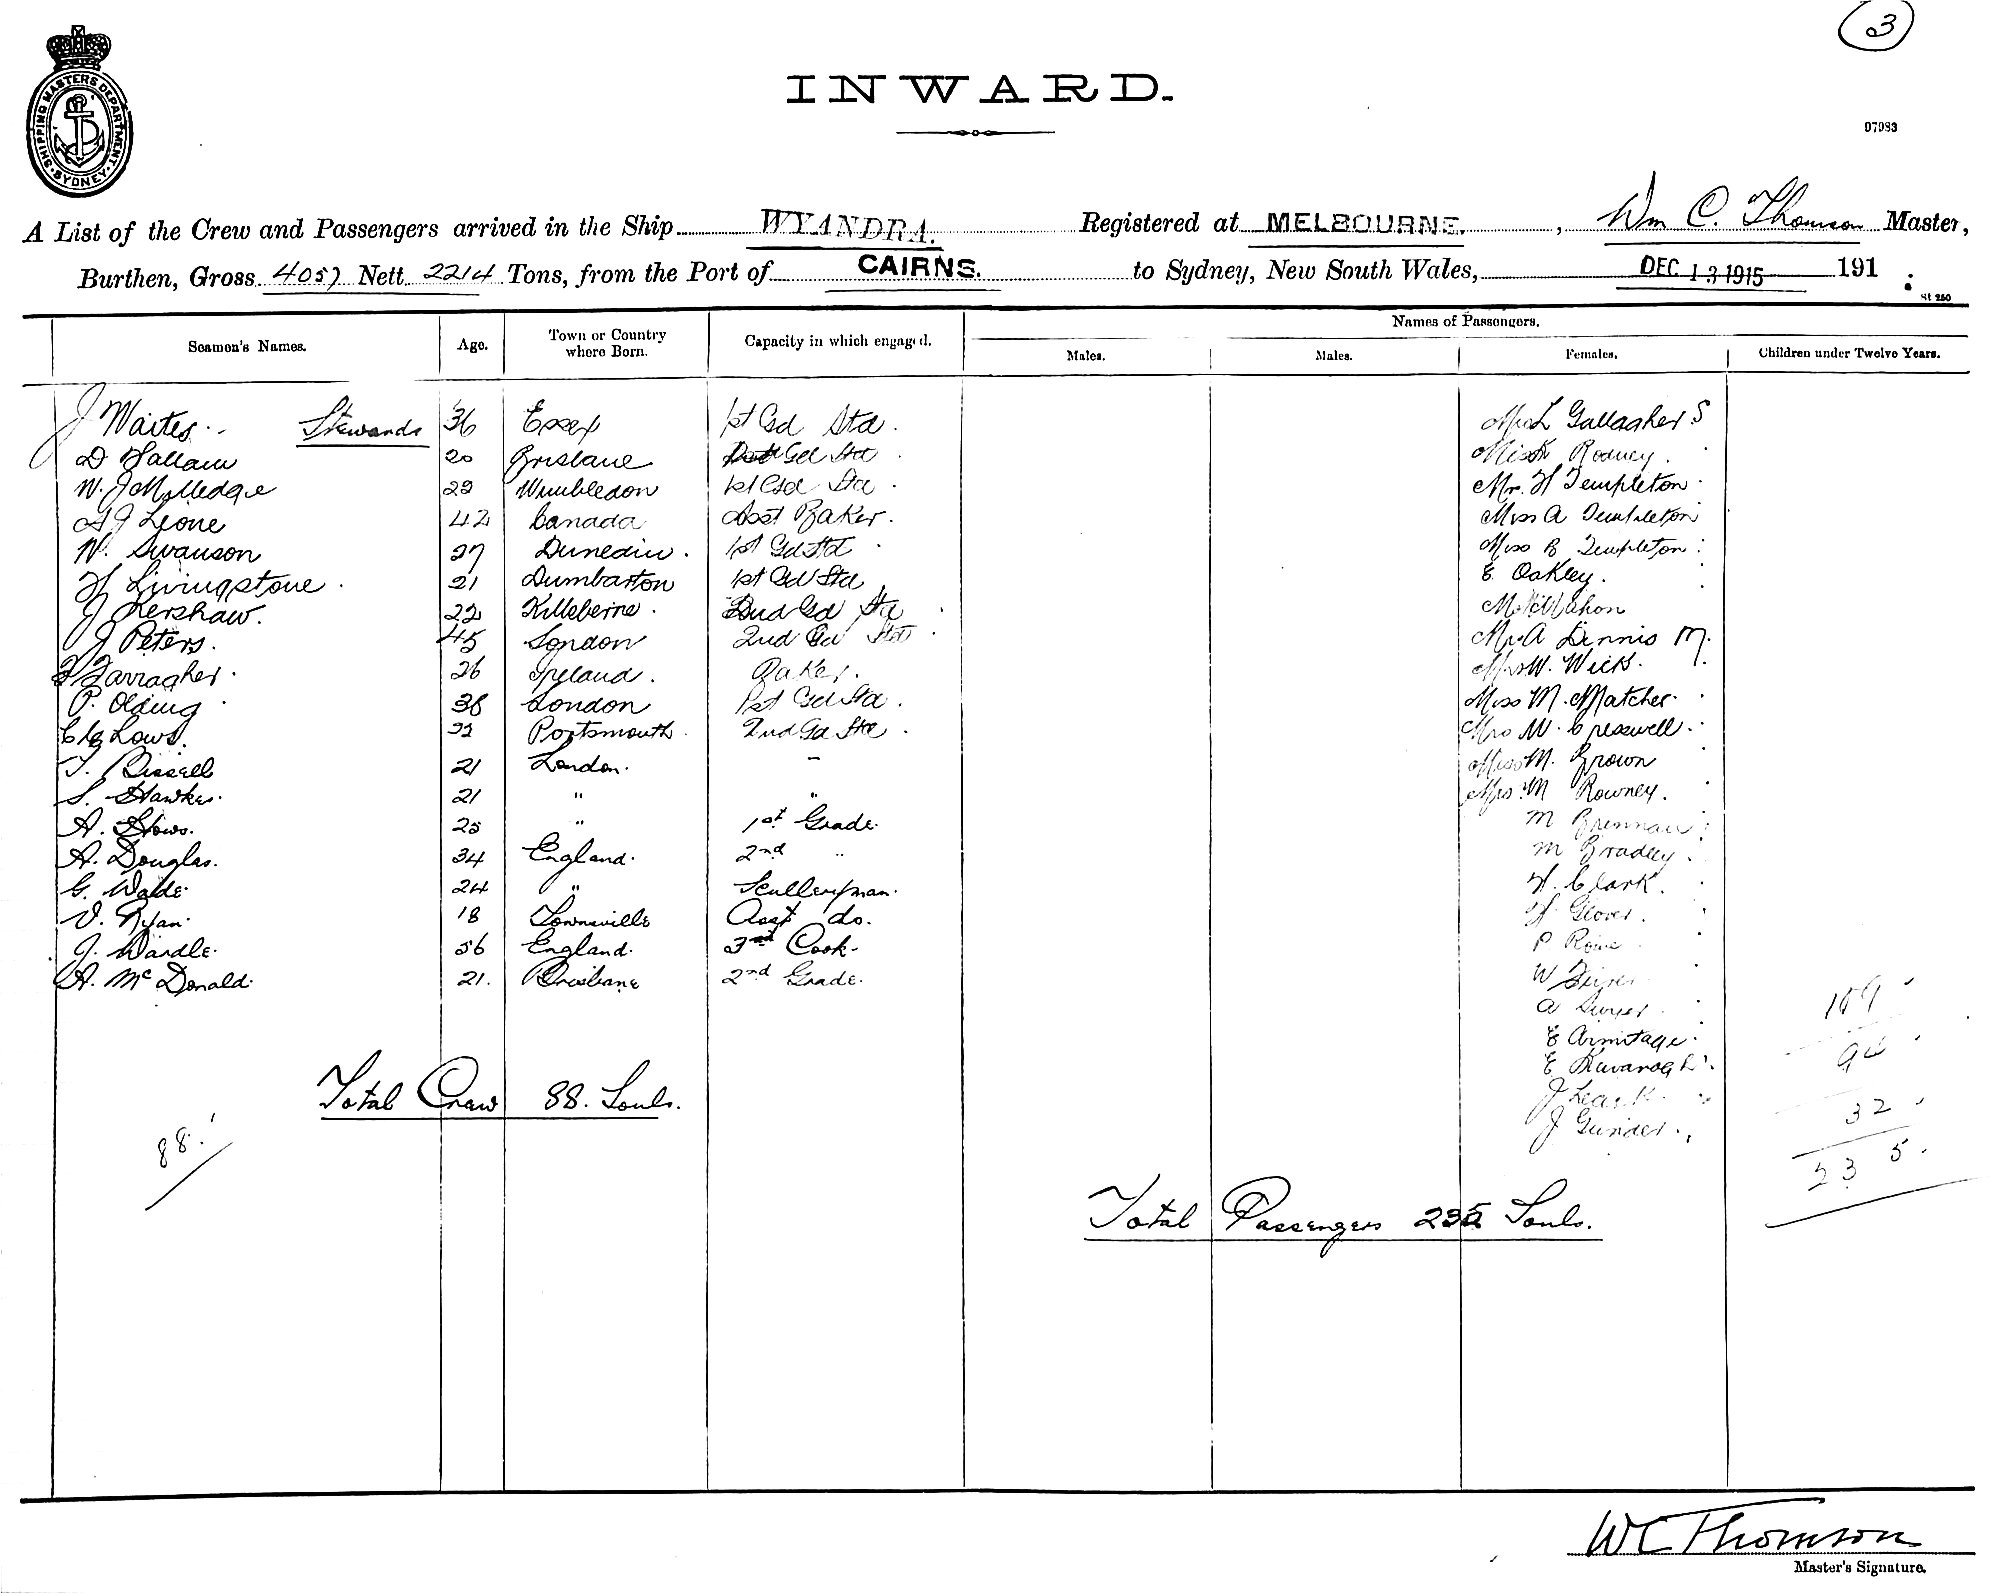 3
INWARD.
07983
SHIPPING MASTERS DEPARTMENT. SYDNEY.
A List of the Crew and Passengers arrived in the Ship WYANDRA. Registered at MELBOURNE. , Wm C. Thomson Master,
Burthen, Gross 4057 Nett 2214 Tons, from the Port of CAIRNS. to Sydney, New South Wales, DEC 13 1915 191 .
St 250
Seamen's Names. Age. Town or Country where Born. Capacity in which engaged. Names of Passengers.
Males. Males. Females. Children under Twelve Years.
J Waites Stewards 36 Essex 1st Gd Std. Gallagher S
D Hallam 20 Brisbane Gd Std Rodney.
W. J 22 Wimbledon 1st Gsd Std Mr. H Templeton
A J Leone 42 Canada Asst Baker. Miss A Templeton
W. Swanson 27 Dunedin. 1st Gd Std Miss B Templeton
H Livingstone 21 Dumbarton 1st Gd Std E Oakley.
J Kershaw. 22 Killeberne 2nd Gd Std M McMahon
J Peters. 45 London 2nd Gd Std A Dennis M.
F Farragher 26 Ireland. Baker. Mrs W. Wicks.
P. Olding 38 London 1st Gd Std. Miss M.
Lows. Portsmouth 2nd Gd Std Mrs W. Cresswell
T. Bissell 21 London. - Miss M. Brown
S. Hawkes. 21 " " Mrs. M Rowney.
A. Stows. 25 " 1st Grade. M Brennan
A. Douglas. 34 England. 2nd " M Bradley
G. Wade. 24 " Sculleryman. H. Clark.
V. Ryan. 18 Townsville Asst do. Glover.
J. Wardle. 56 England. 3rd Cook. P
A. McDonald. 21. Brisbane 2nd Grade. W
A
109
E Armitage.
94
E Kavanagh
Total Crew 88. Souls. J
32
J Gunder.
88.
235.
Total Passengers 235 Souls.
W C Thomson
Master's Signature.